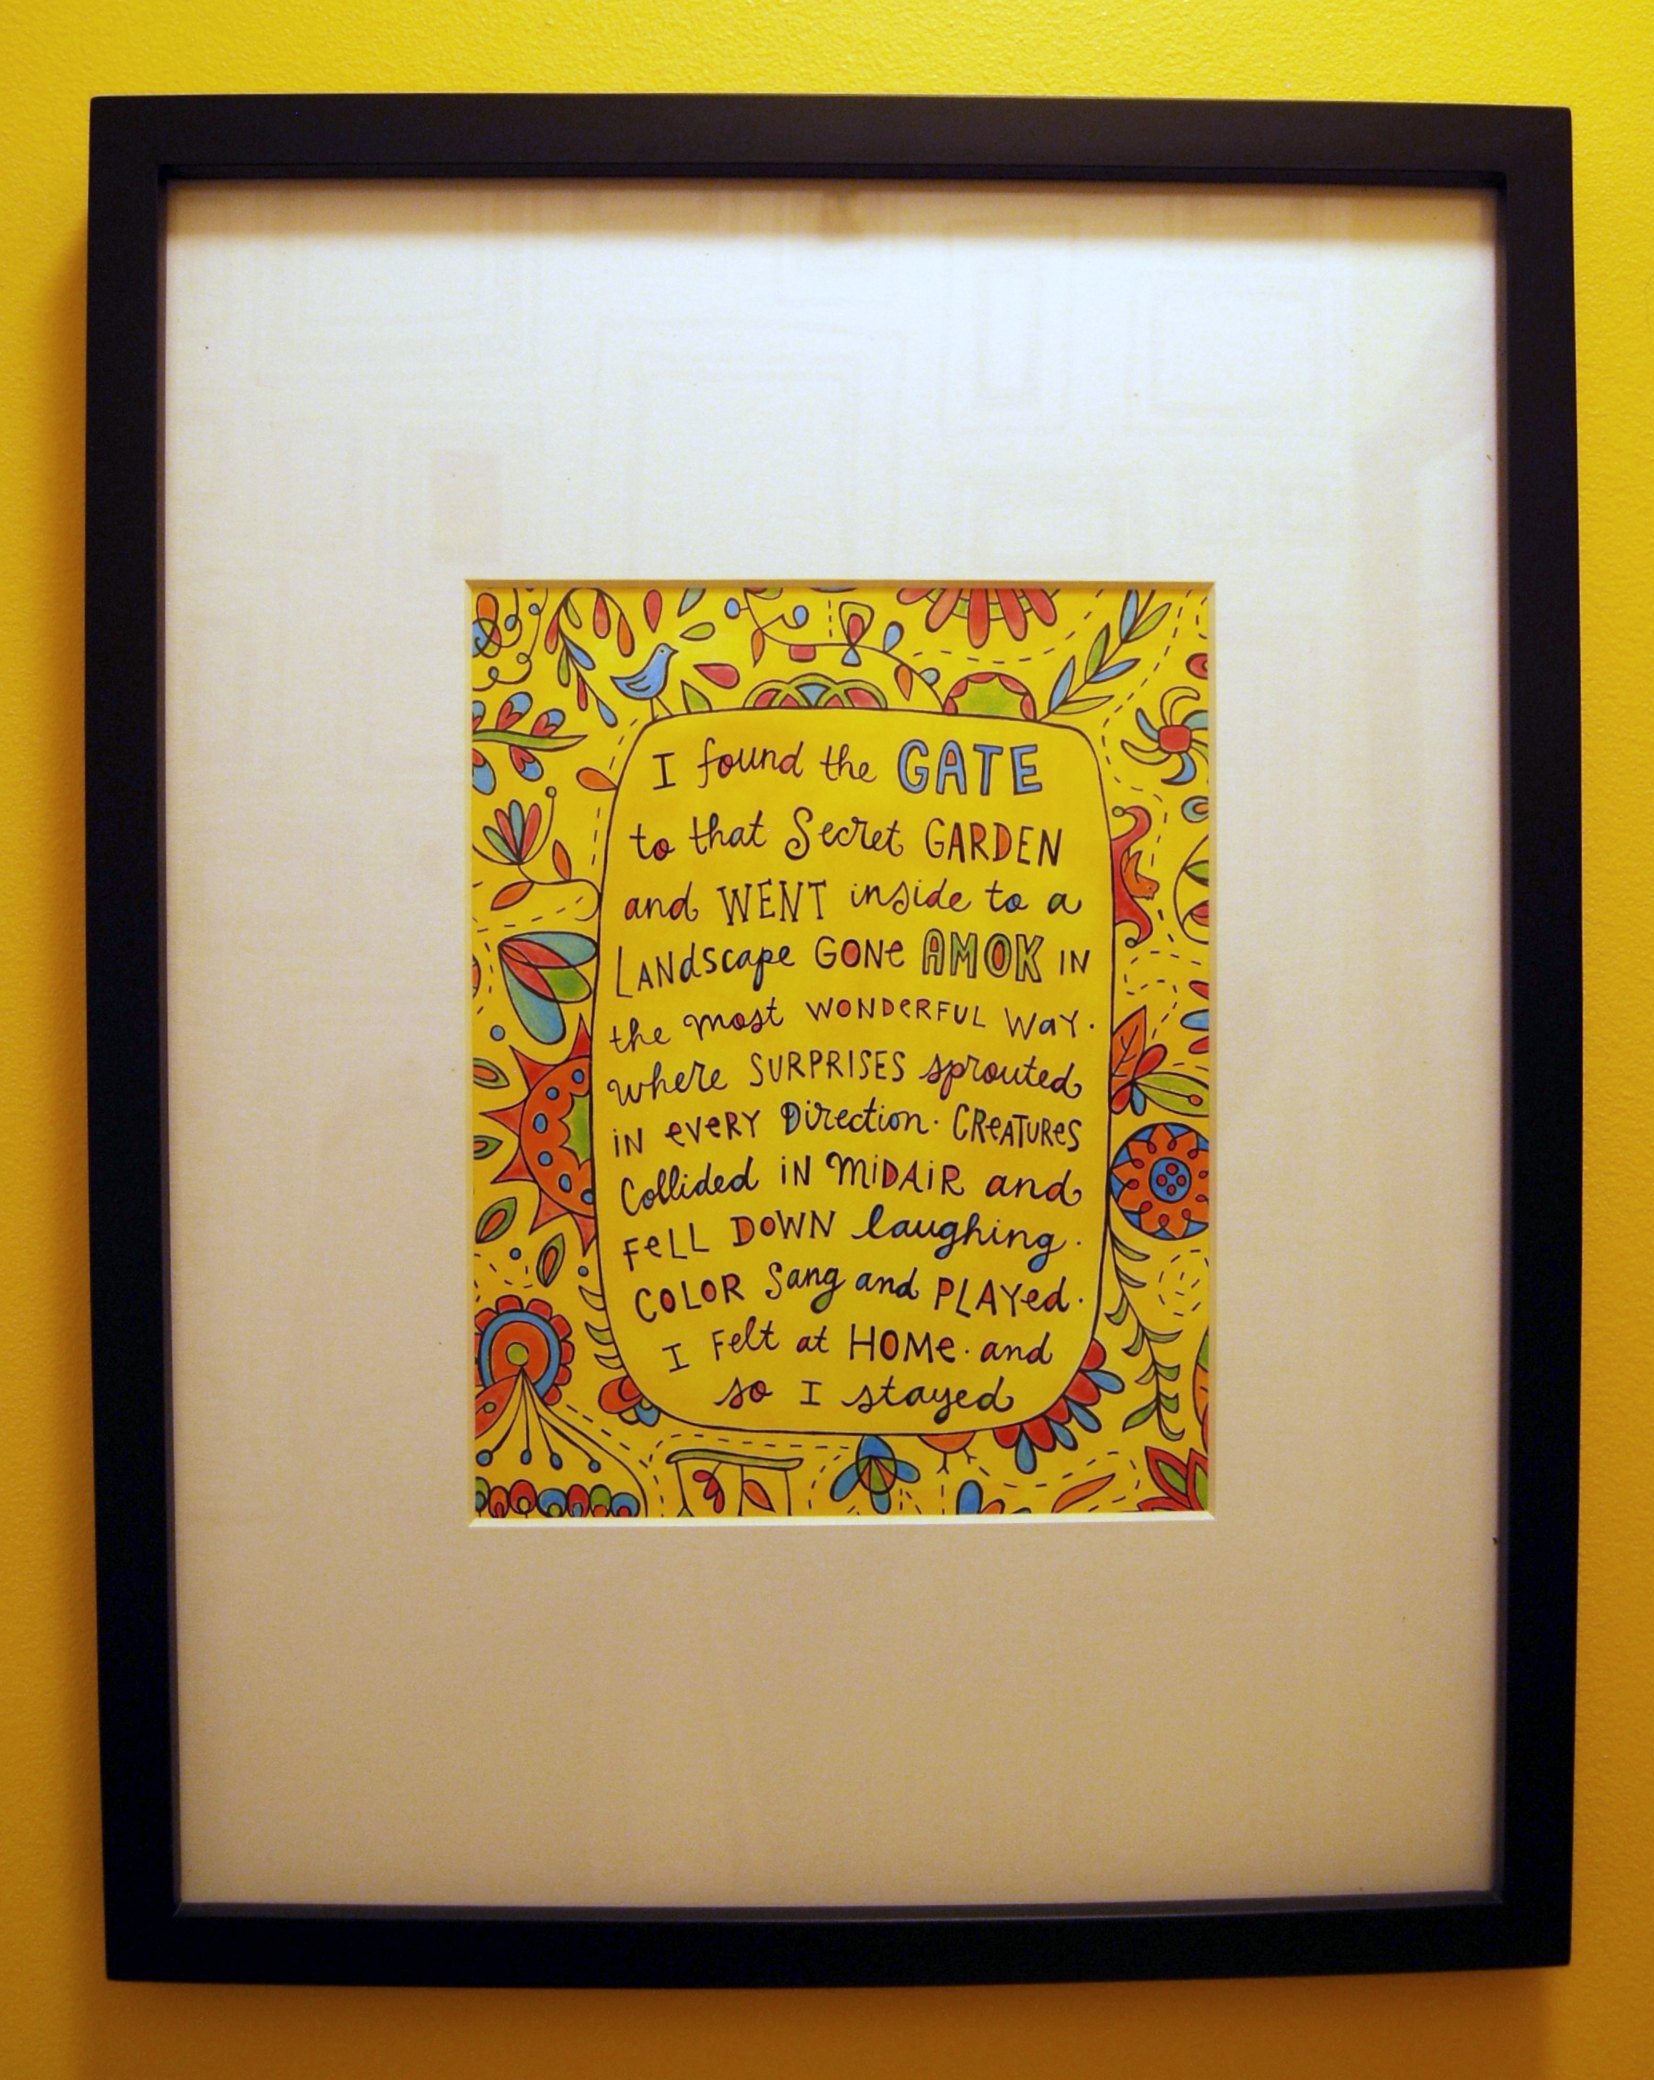 I found the GATE
to that Secret GARDEN
and WENT inside to a
LANdscape GONe AMOK IN
the most WONDeRFUL WaY.
where SURPRISES sprouted
iN eVeRY Direction. CReATURes
Collided iN MiDAiR and
FeLL DOWN laughing.
COLOR Sang and PLAYed.
I Felt at HOMe. and
so I stayed